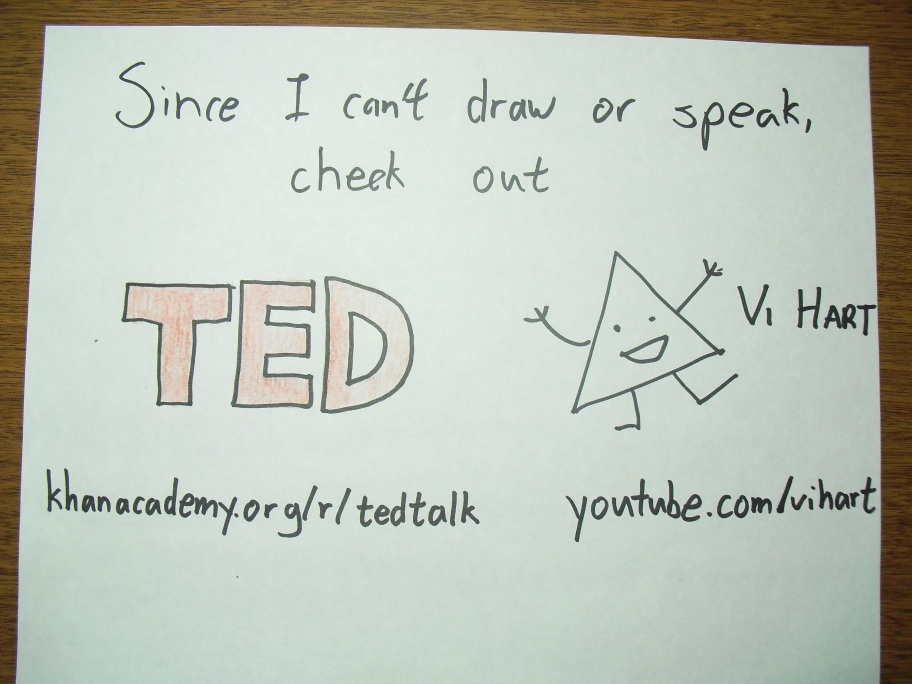 Since I can't draw or speak,
check out
TED
Vi HART
khanacademy.org/r/tedtalk
youtube.com/vihart